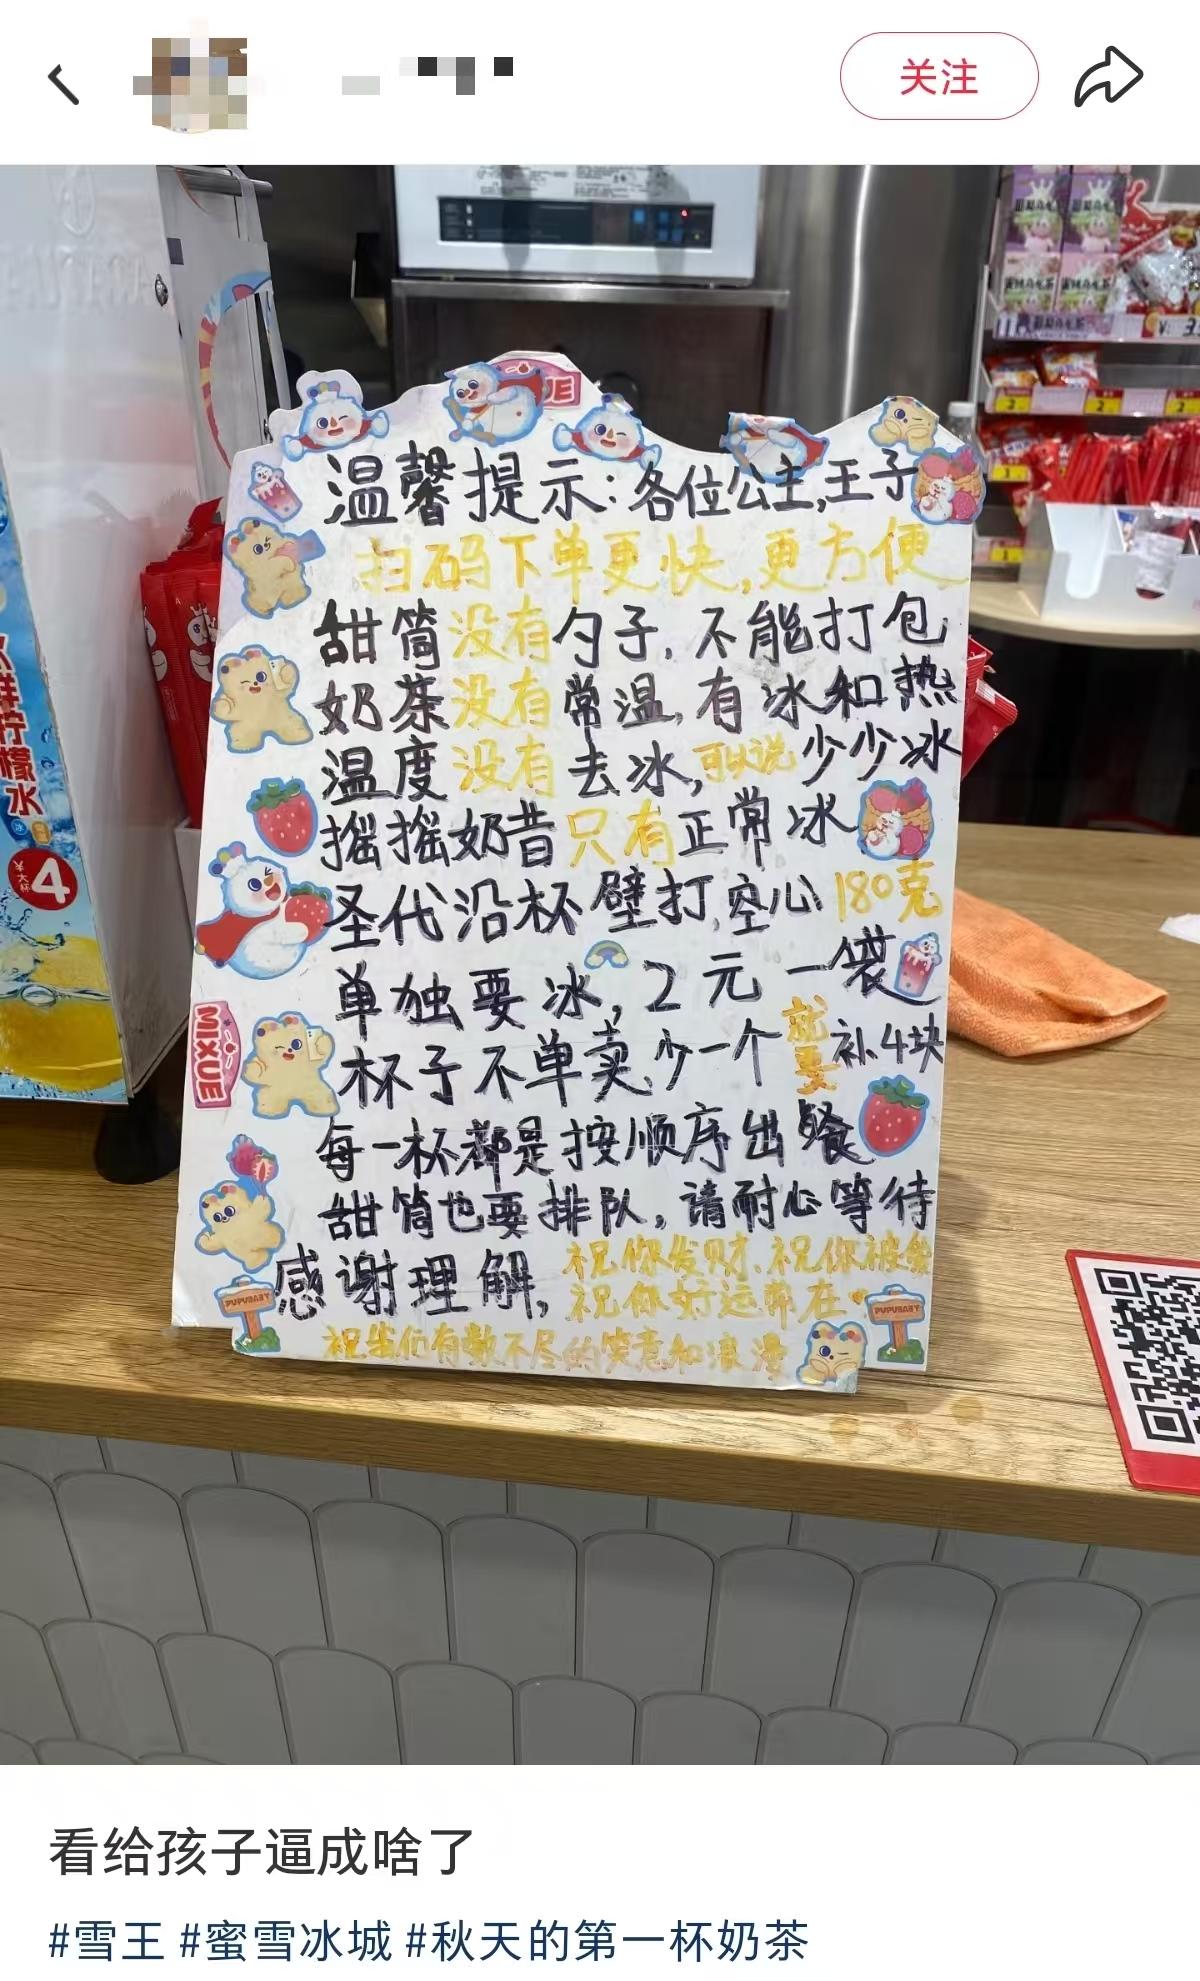 关注
温馨提示:各位公主,王子
扫码下单更快,更方便
甜筒没有勺子,不能打包
奶茶没有常温,有冰和热
温度没有去冰,可以说少少冰
摇摇奶昔只有正常冰
圣代沿杯壁打,空心180克
单独要冰,2元一袋
杯子不单卖,少一个就要补4块
每一杯都是按顺序出餐
甜筒也要排队,请耐心等待
感谢理解,祝你发财、祝你被爱
祝你好运常在
祝我们有数不尽的笑意和浪漫
MIXUE
PUPUBABY
PUPUBABY
鲜柠檬水
大杯
¥4
看给孩子逼成啥了
#雪王 #蜜雪冰城 #秋天的第一杯奶茶